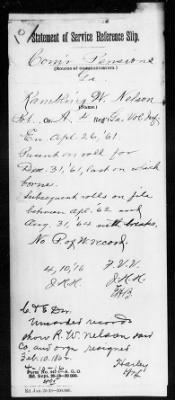 Statement of Service Reference Slip.
Com'r Pensions
(Source of communication.)
Ga
W. Nelson
(Name.)
Co. A, 4 Reg Ga. Vol. Inf.
En Apr. 26, '61
Present on roll for
Dec. 31, '61, last on which
borne.
Subsequent rolls on file
between Apr. 62 and
Aug. 31, '64 with breaks.
No P of W record.
4, 10, '16 F.V.V.
J.H.H. J.H.H.
C & E Div
Unarded records
show R. W. Nelson said
Co. and org. resigned
Feb. 10, 1862.
Harley
4-10-16